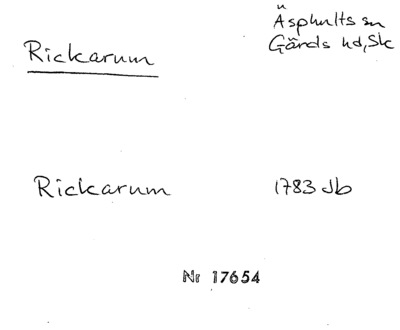 Äsphults sn
Rickarum
Gärds hd, Sk
Rickarum 1783 Jb
Nr 17654